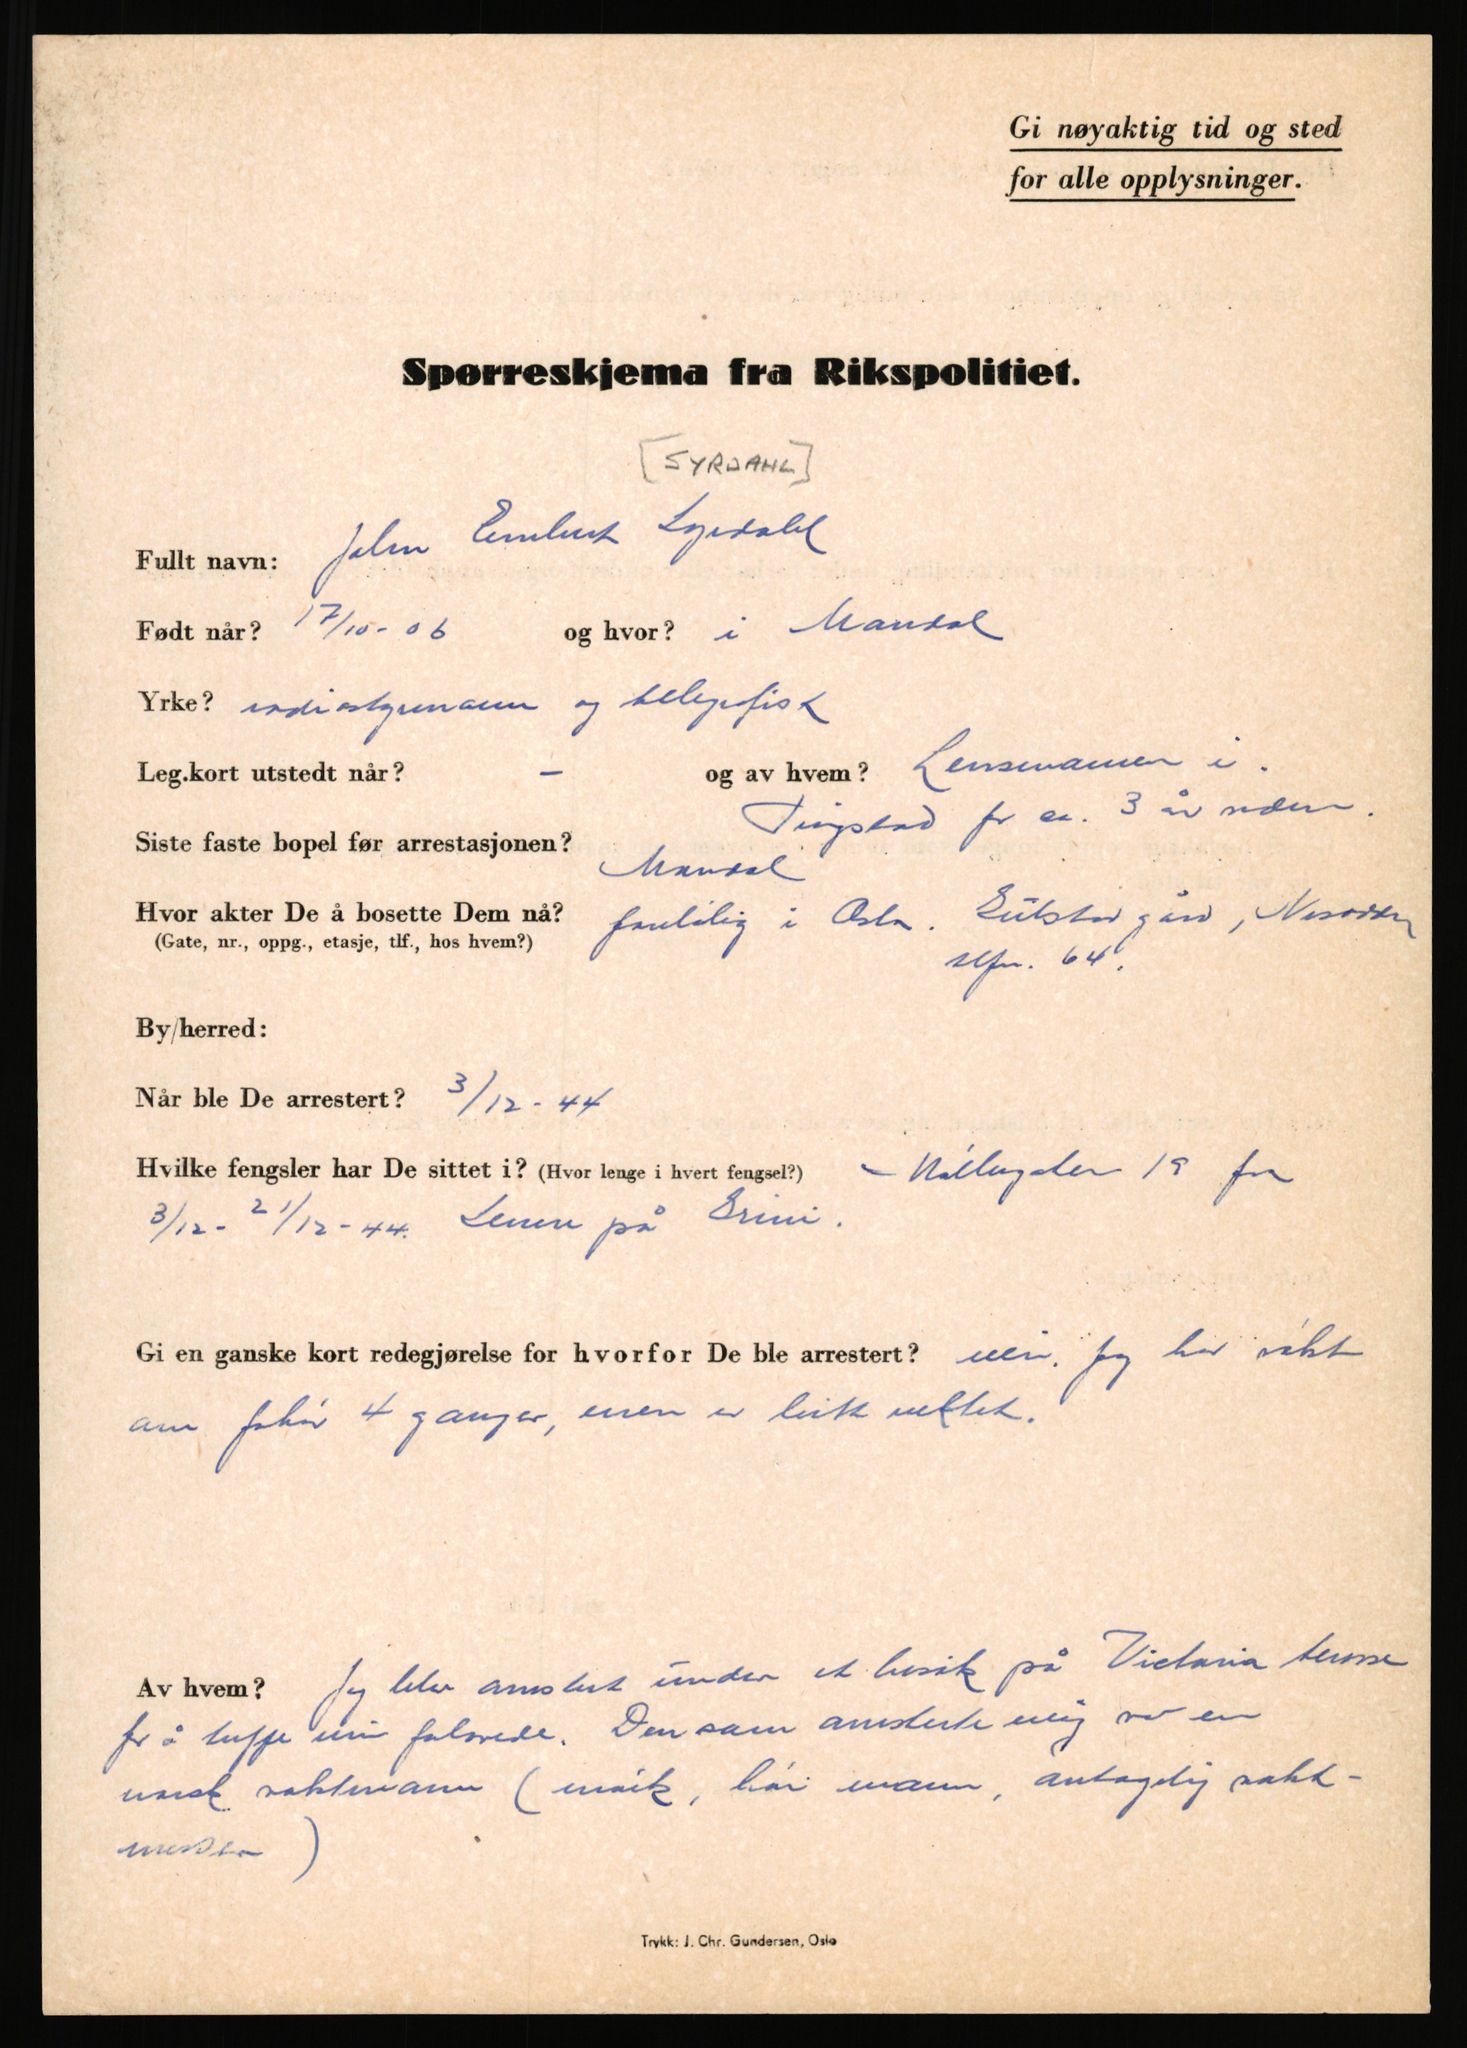 Gi nøyaktig tid og sted
for alle opplysninger.
Spørreskjema fra Rikspolitiet.
[SYRDAHL]
Fullt navn: John Syrdahl
Født når? 17/10-06 og hvor? i Mandal
Yrke? og telegrafist
Leg.kort utstedt når? – og av hvem? Lensmannen i
for ca. 3 år siden.
Siste faste bopel før arrestasjonen? Mandal
Hvor akter De å bosette Dem nå? foreløbig i Oslo. gård, Nesodden
(Gate, nr., oppg., etasje, tlf., hos hvem?) tlfn. 64.
By/herred:
Når ble De arrestert? 3/12-44
Hvilke fengsler har De sittet i? (Hvor lenge i hvert fengsel?) – Møllergaten 19 fra
3/12-21/12-44. Senere på Grini.
Gi en ganske kort redegjørelse for hvorfor De ble arrestert? nei. Jeg har vært
om forhör 4 ganger, men er blitt nektet.
Av hvem? Jeg blev arrestert under et besök på Victoria terrasse
for å treffe min forlovede. Den som arresterte mig var en
norsk vaktmann (mörk, höi mann, antagelig vakt-
)
Trykk: J. Chr. Gundersen, Oslo